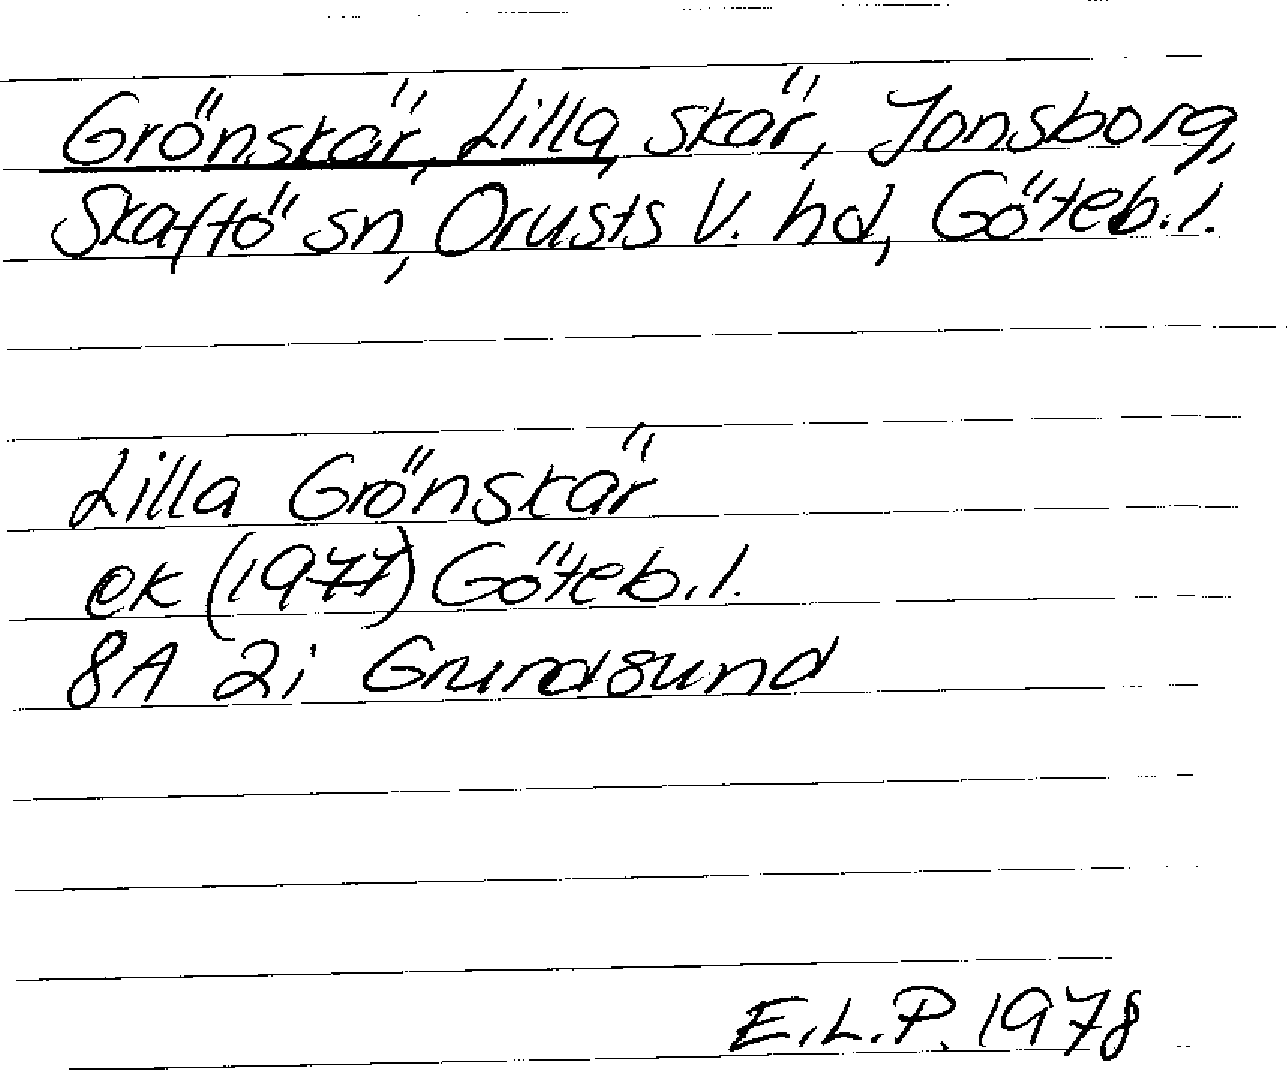 Grönskär, Lilla, skär, Jonsborg,
Skaftö sn, Orusts V. hd, Göteb.l.
Lilla Grönskär
ek (1977) Göteb.l.
8A 2i Grundsund
E.L.P. 1978